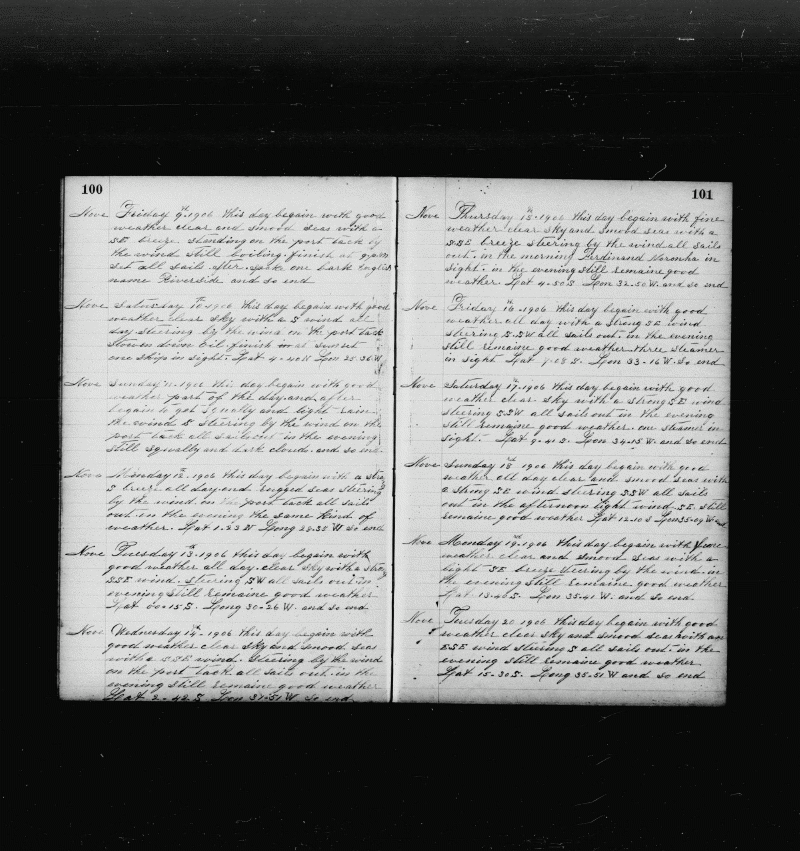 100
Nove Friday 9th 1906 this day begain with good
weather clear and smood seas with a
SSE breeze standing on the port tack by
the wind still boiling. finish at 9 pm
set all sails after. spke one bark English
name Riverside and so end
Nove Saturday 10th 1906 this day begain with good
weather clear sky with a S wind all
day steering by the wind on the port tack
Stowen down oil. finish at sunset
one ship in sight. Lat 4-40 N Lon 25-36 W
Nove Sunday 11-1906 this day begain with good
weather part of the day and after
begain to get squally and light rain
the wind S steering by the wind on the
port tack all sails out in the evening
still squally and dark clouds. and so end
Nove Monday 12th-1906 this day begain with a stro
S breeze all day and rugged seas steering
by the wind on the port tack all sails
out. in the evening the same kind of
weather. Lat 1-23 N Long 28-35 W so end
Nove Tuesday 13-1906 this day begain with
good weather all day. clear sky with a strong
SSE wind. steering SW all sails out. in
evening still remaine good weather
Lat 00-15 S. Long 30-26 W. and so end
Nove Wednesday 14th-1906 this day begain with
good weather clear sky and smood seas
with a SSE wind. Steering by the wind
on the port tack all sails out. in the
evening still remaine good weather
Lat 2-42 S Lon 31-51 W so end
101
Nove Thursday 15th-1906 this day begain with fine
weather clear sky and smood seas with a
SSE breeze steering by the wind all sails
out. in the morning Ferdinand Noronha in
sight. in the evening still remaine good
weather Lat 4-50 S Lon 32-50 W. and so end
Nove Friday 16-1906 this day begain with good
weather all day with a strong SE wind
steering S-SW all sails out. in the evening
still remaine good weather three steamer
in sight Lat 7-08 S. Lon 33-16 W. so end
Nove Saturday 17-1906 this day begain with good
weather clear sky with a strong SE wind
steering SSW all sails out in the evening
still remaine good weather. one steamer in
sight. Lat 9-41 S. Lon 34-15 W. and so end
Nove Sunday 18 1906 this day begain with good
weather all day clear and smood seas with
a strong SE wind steering SSW all sails
out in the afternoon light wind SE still
remaine good weather Lat 12-10 S Lon 35-09 W and
Nove Monday 19-1906 this day begain with fine
weather clear and smood seas with a
light SE breeze steering by the wind. in
the evening still remaine good weather
Lat 13-40 S. Lon 35-41 W. and so end
Nove Tuesday 20 1906 this day begain with good
weather clear sky and smood seas with an
ESE wind steering S all sails out. in the
evening still remaine good weather
Lat 15-30 S. Long 35-51 W and so end